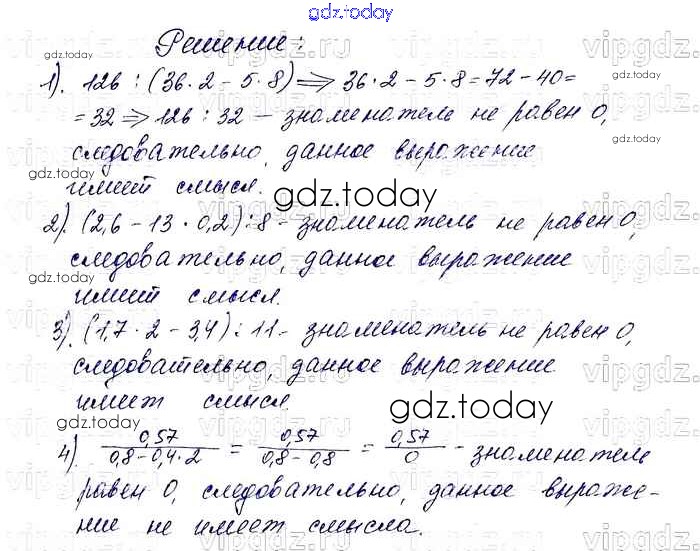 gdz.today
Решение:
1). 126 : (36·2 – 5·8) ⟹ 36·2 – 5·8 = 72 – 40 =
= 32 ⟹ 126 : 32 – знаменатель не равен 0,
следовательно, данное выражение
имеет смысл.
gdz.today
2). (2,6 – 13·0,2) : 8 – знаменатель не равен 0,
следовательно, данное выражение
имеет смысл.
3). (1,7·2 – 3,4) : 11 – знаменатель не равен 0,
следовательно, данное выражение
имеет смысл.
gdz.today
4). 0,57/(0,8 – 0,4·2) = 0,57/(0,8 – 0,8) = 0,57/0 – знаменатель
равен 0, следовательно, данное выраже-
ние не имеет смысла.